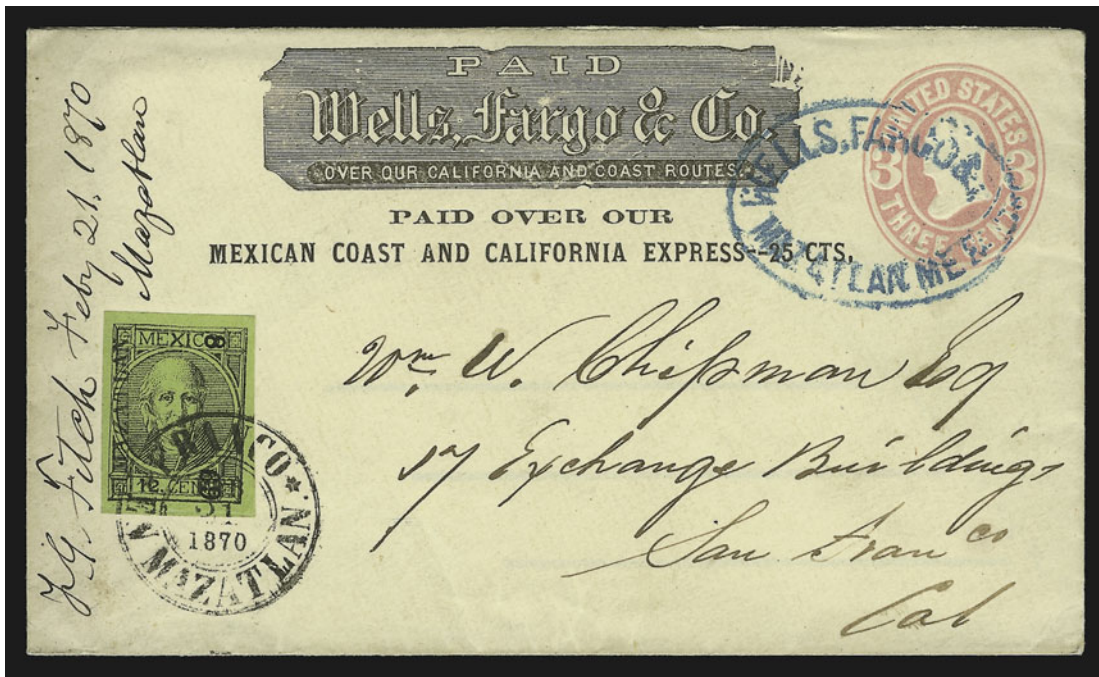 PAID
Wells, Fargo & Co.
OVER OUR CALIFORNIA AND COAST ROUTES.
PAID OVER OUR
MEXICAN COAST AND CALIFORNIA EXPRESS--25 CTS.
UNITED STATES
3 3
THREE CENTS
WELLS, FARGO &
MAZATLAN MEX
J G Fitch Feby 21. 1870
Mazatlan
MEXICO
12. CEN
FRANCO
1870
MAZATLAN
Wm W. Chipman Esq
17 Exchange Buildings
San Franco
Cal